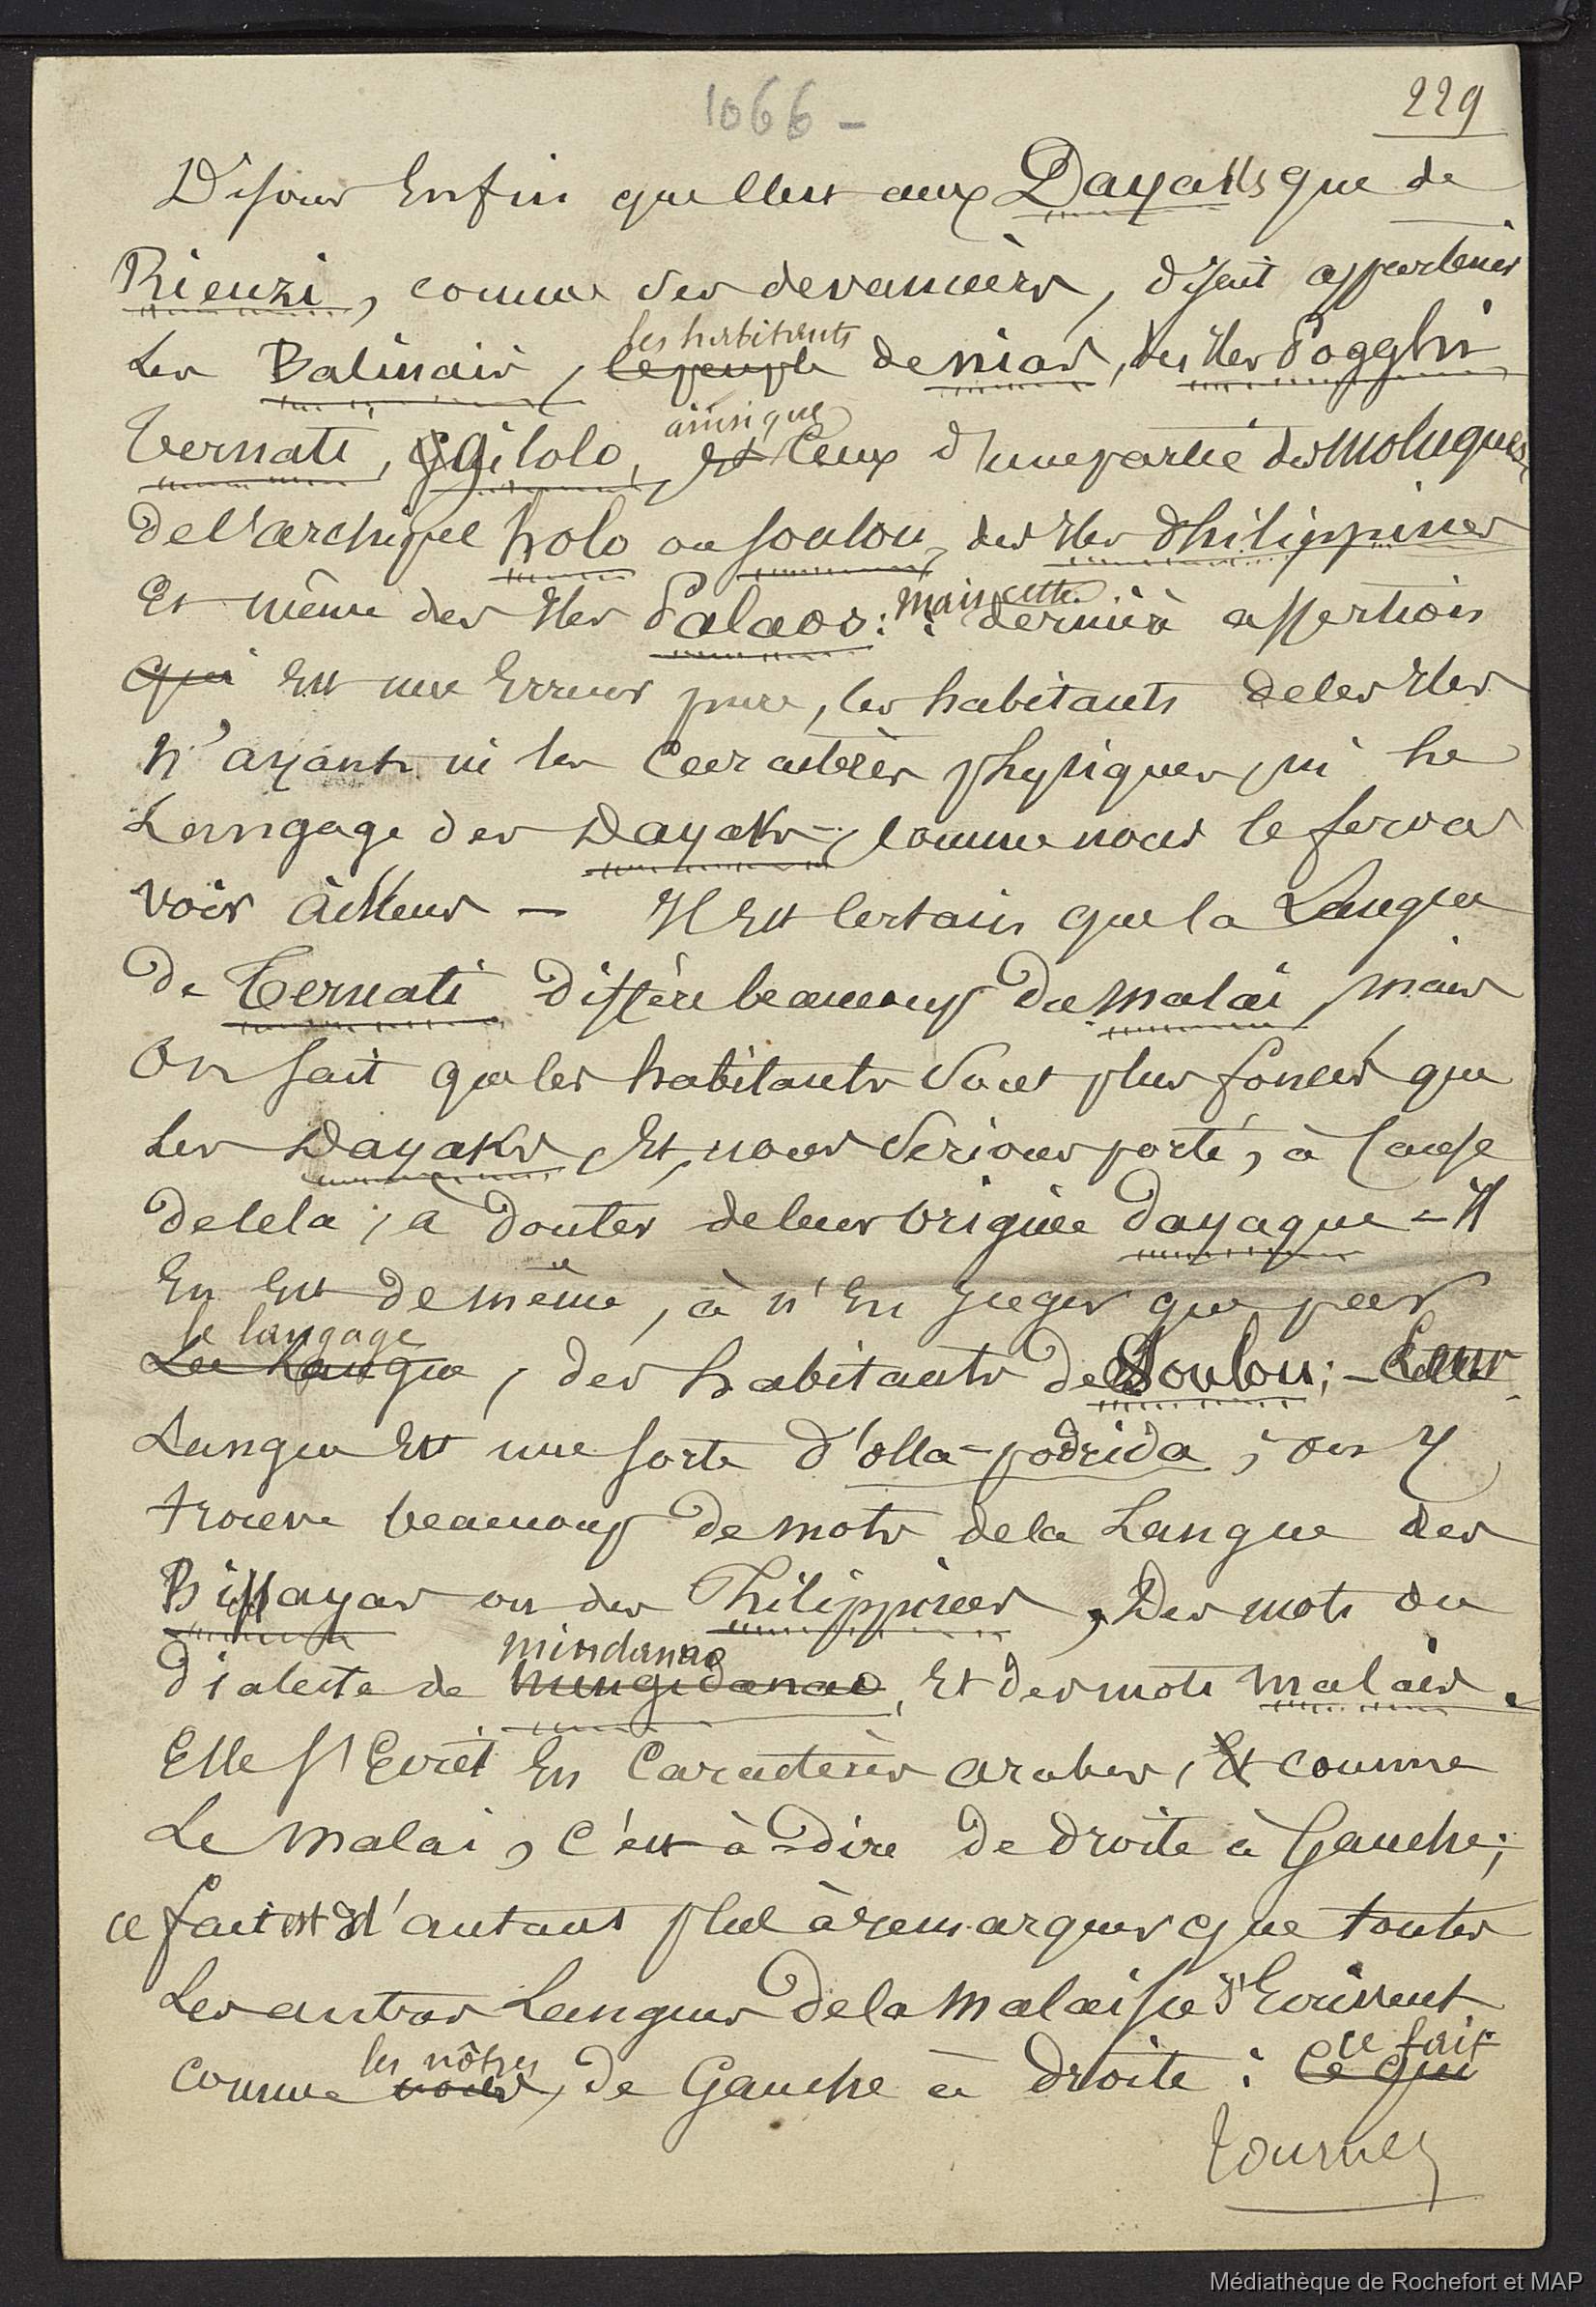 1066 -
229
Disons Enfin que c'est aux Dayaks que de
Rienzi, comme ses devanciers, disait appartenir
Les Balinais, le peuple les habitants de nias, des Iles Pogghi
Ternati, Gilolo, et ainsi que Ceux d'une partie des moluques,
de l'archipel holo ou soulou, des Iles Philippines
Et même des Iles Palaos : mais cette dernière assertion
qui Est une Erreur pure, les habitants de ces Iles
N'ayant ni les Caractères physiques, ni le
Langage des Dayaks -, comme nous le ferons
voir ailleurs - Il Est Certain que la Langue
De Ternati Diffère beaucoup du malai, mais
On sait que les habitants sont plus foncés que
Les Dayaks Et, nous serions porté, à Cause
de cela, à Douter de leur origine dayaque - Il
En Est de même, à n'En juger que par
La Langue le langage, des habitants de Soulou ; - Leur
Langue Est une sorte d'olla-podrida ; on y
trouve beaucoup de mots de la Langue des
Bissayas ou des Philippines, Des mots du
dialecte de mungidanao mindanao, Et des mots malais.
Elle s'Ecrit En Caractères arabes, Et comme
Le malai, c'est-à-dire de droite à Gauche ;
ce fait est d'autant plus à remarquer que toutes
Les autres Langues de la malaisie s'Ecrivent
comme nous les nôtres, de Gauche à droite : Ce qui ce fait
tournez
Médiathèque de Rochefort et MAP